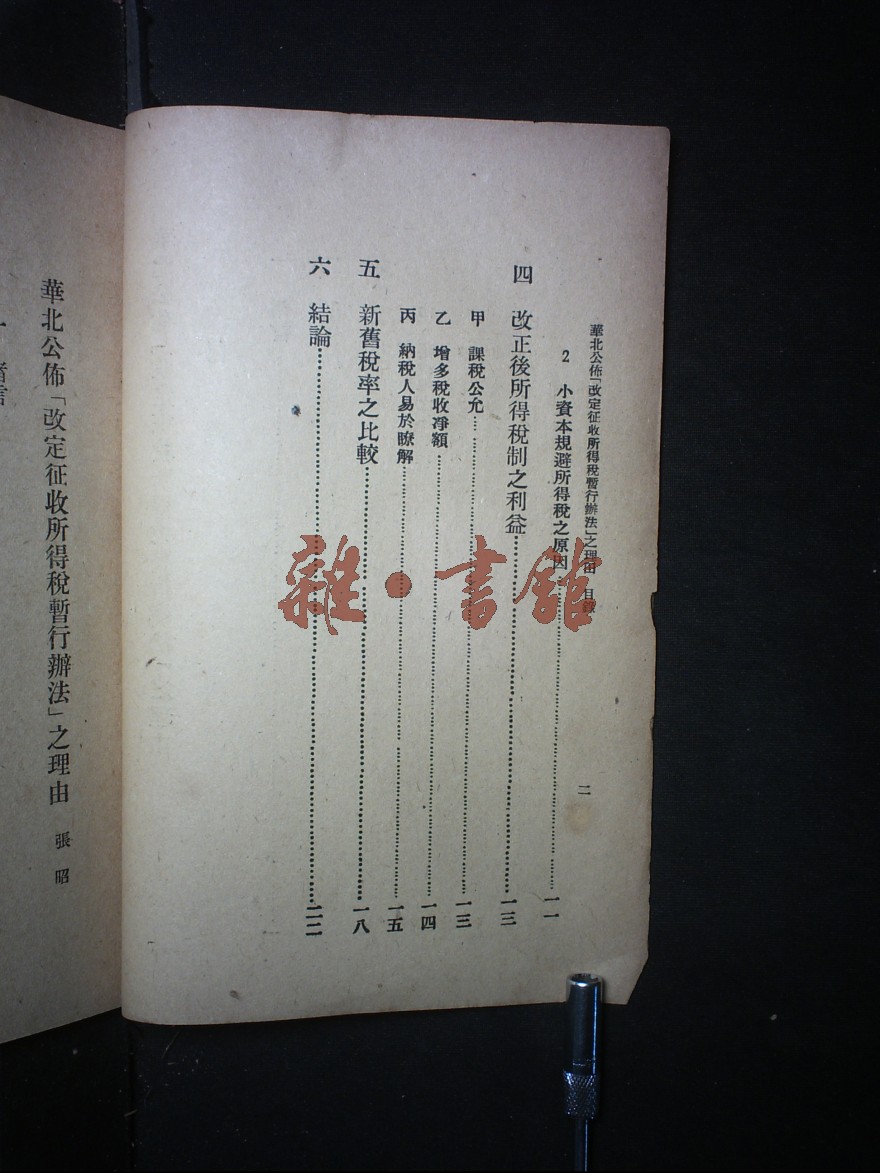 華北公佈「改定征收所得稅暫行辦法」之理由 目錄 二
2 小資本規避所得稅之原因……一一
四 改正後所得稅制之利益……一三
甲 課稅公允……一三
乙 增多稅收淨額……一四
丙 納稅人易於瞭解……一五
五 新舊稅率之比較……一八
六 結論……二二
華北公佈「改定征收所得稅暫行辦法」之理由 張昭
雜·書館